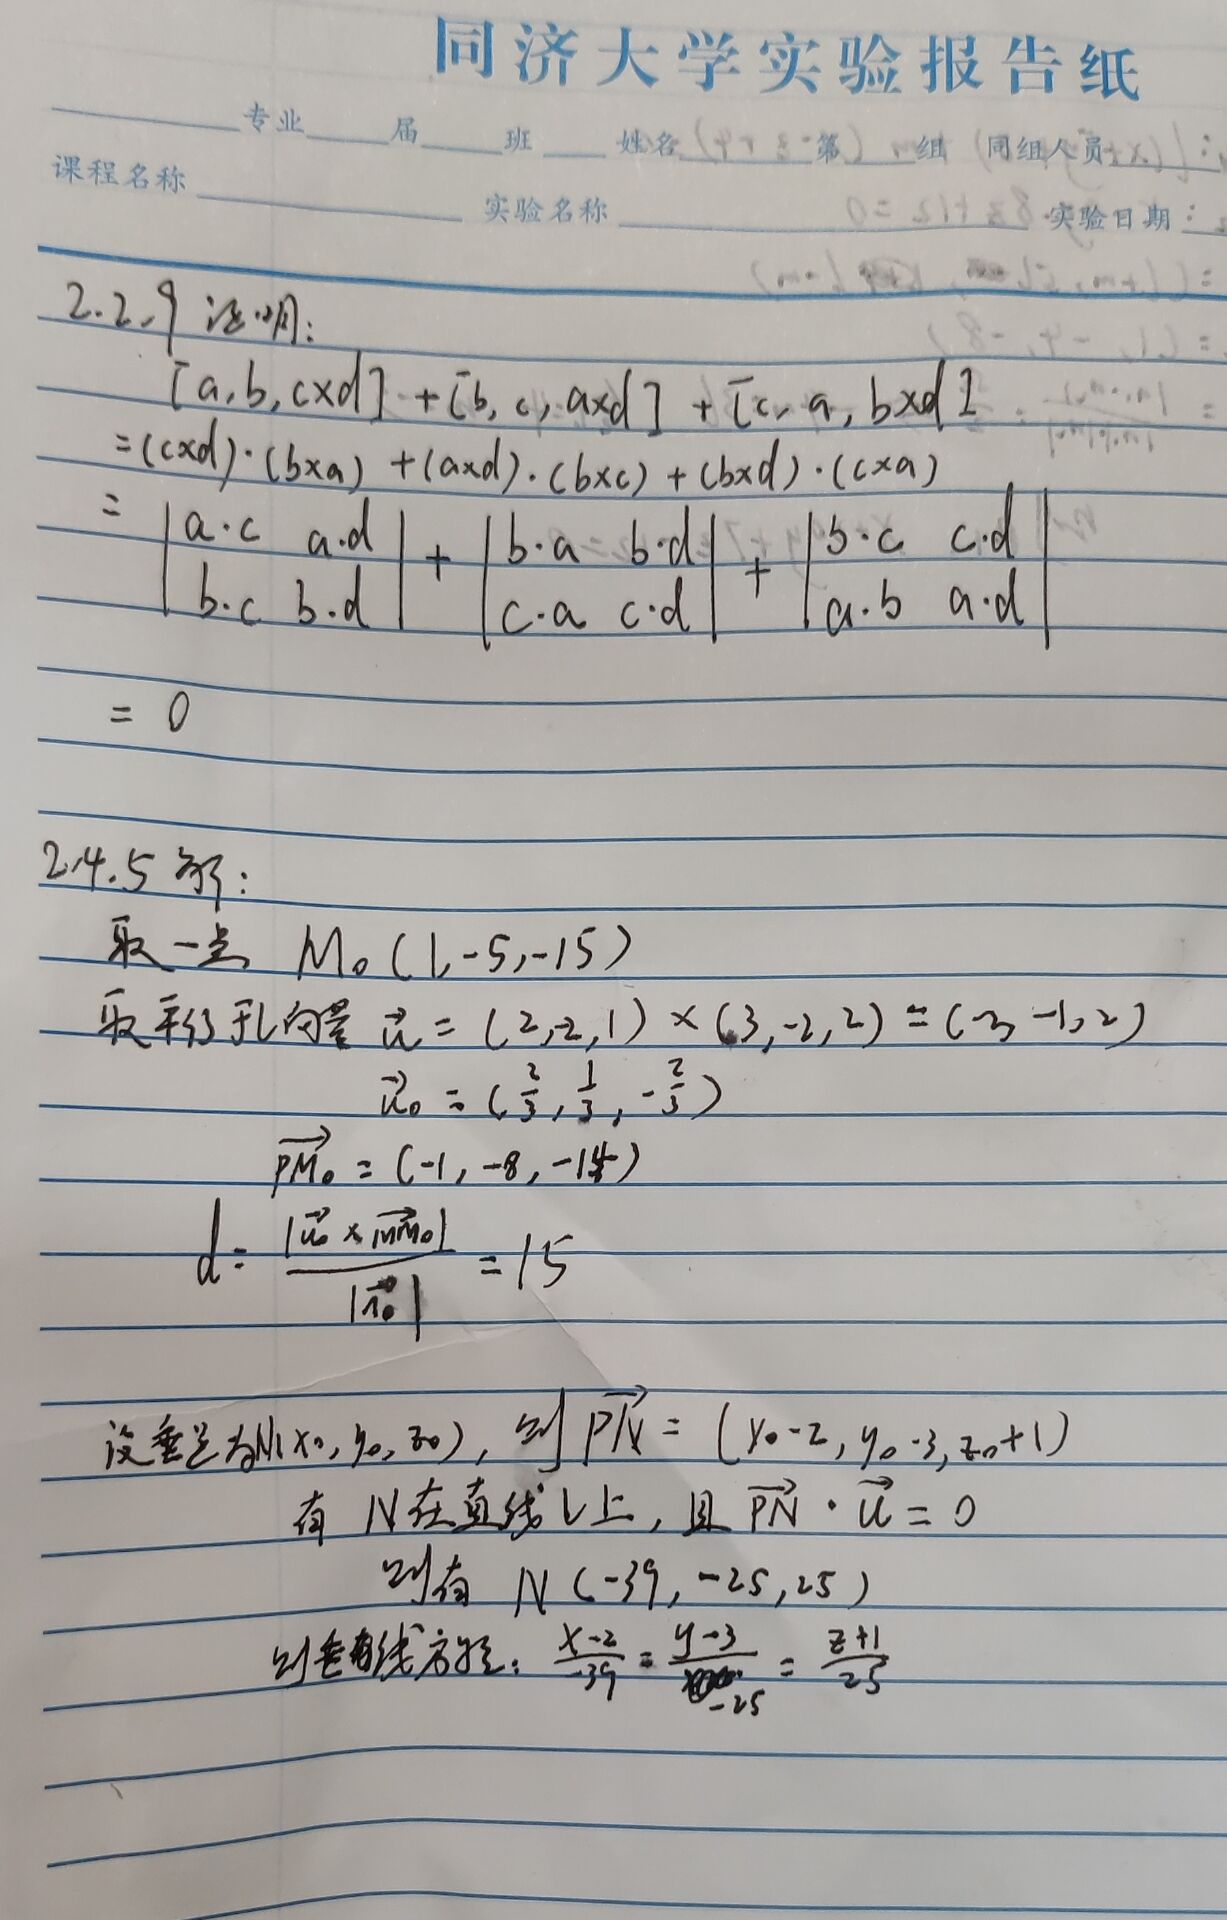 同济大学实验报告纸
专业 届 班 姓名 第 组 同组人员
课程名称 实验名称 实验日期
2.2.9 证明:
[a, b, c×d] + [b, c, a×d] + [c, a, b×d]
= (c×d)·(b×a) + (a×d)·(b×c) + (b×d)·(c×a)
= |a·c a·d| + |b·a b·d| + |b·c c·d|
|b·c b·d| |c·a c·d| |a·b a·d|
= 0
2.4.5 解:
取一点 M₀(1,-5,-15)
取平行于l向量 u⃗ = (2,-2,1) × (3,-2,2) = (-2, -1, 2)
u⃗₀ = (2/3, 1/3, -2/3)
PM₀ = (-1, -8, -14)
d = |u⃗₀ × MM₀| / |u⃗₀| = 15
设垂足为N(x₀, y₀, z₀), 则 PN = (x₀-2, y₀-3, z₀+1)
有 N在直线L上, 且 PN · u⃗ = 0
则有 N(-39, -25, 25)
则垂线方程: (x-2)/-39 = (y-3)/-25 = (z+1)/25